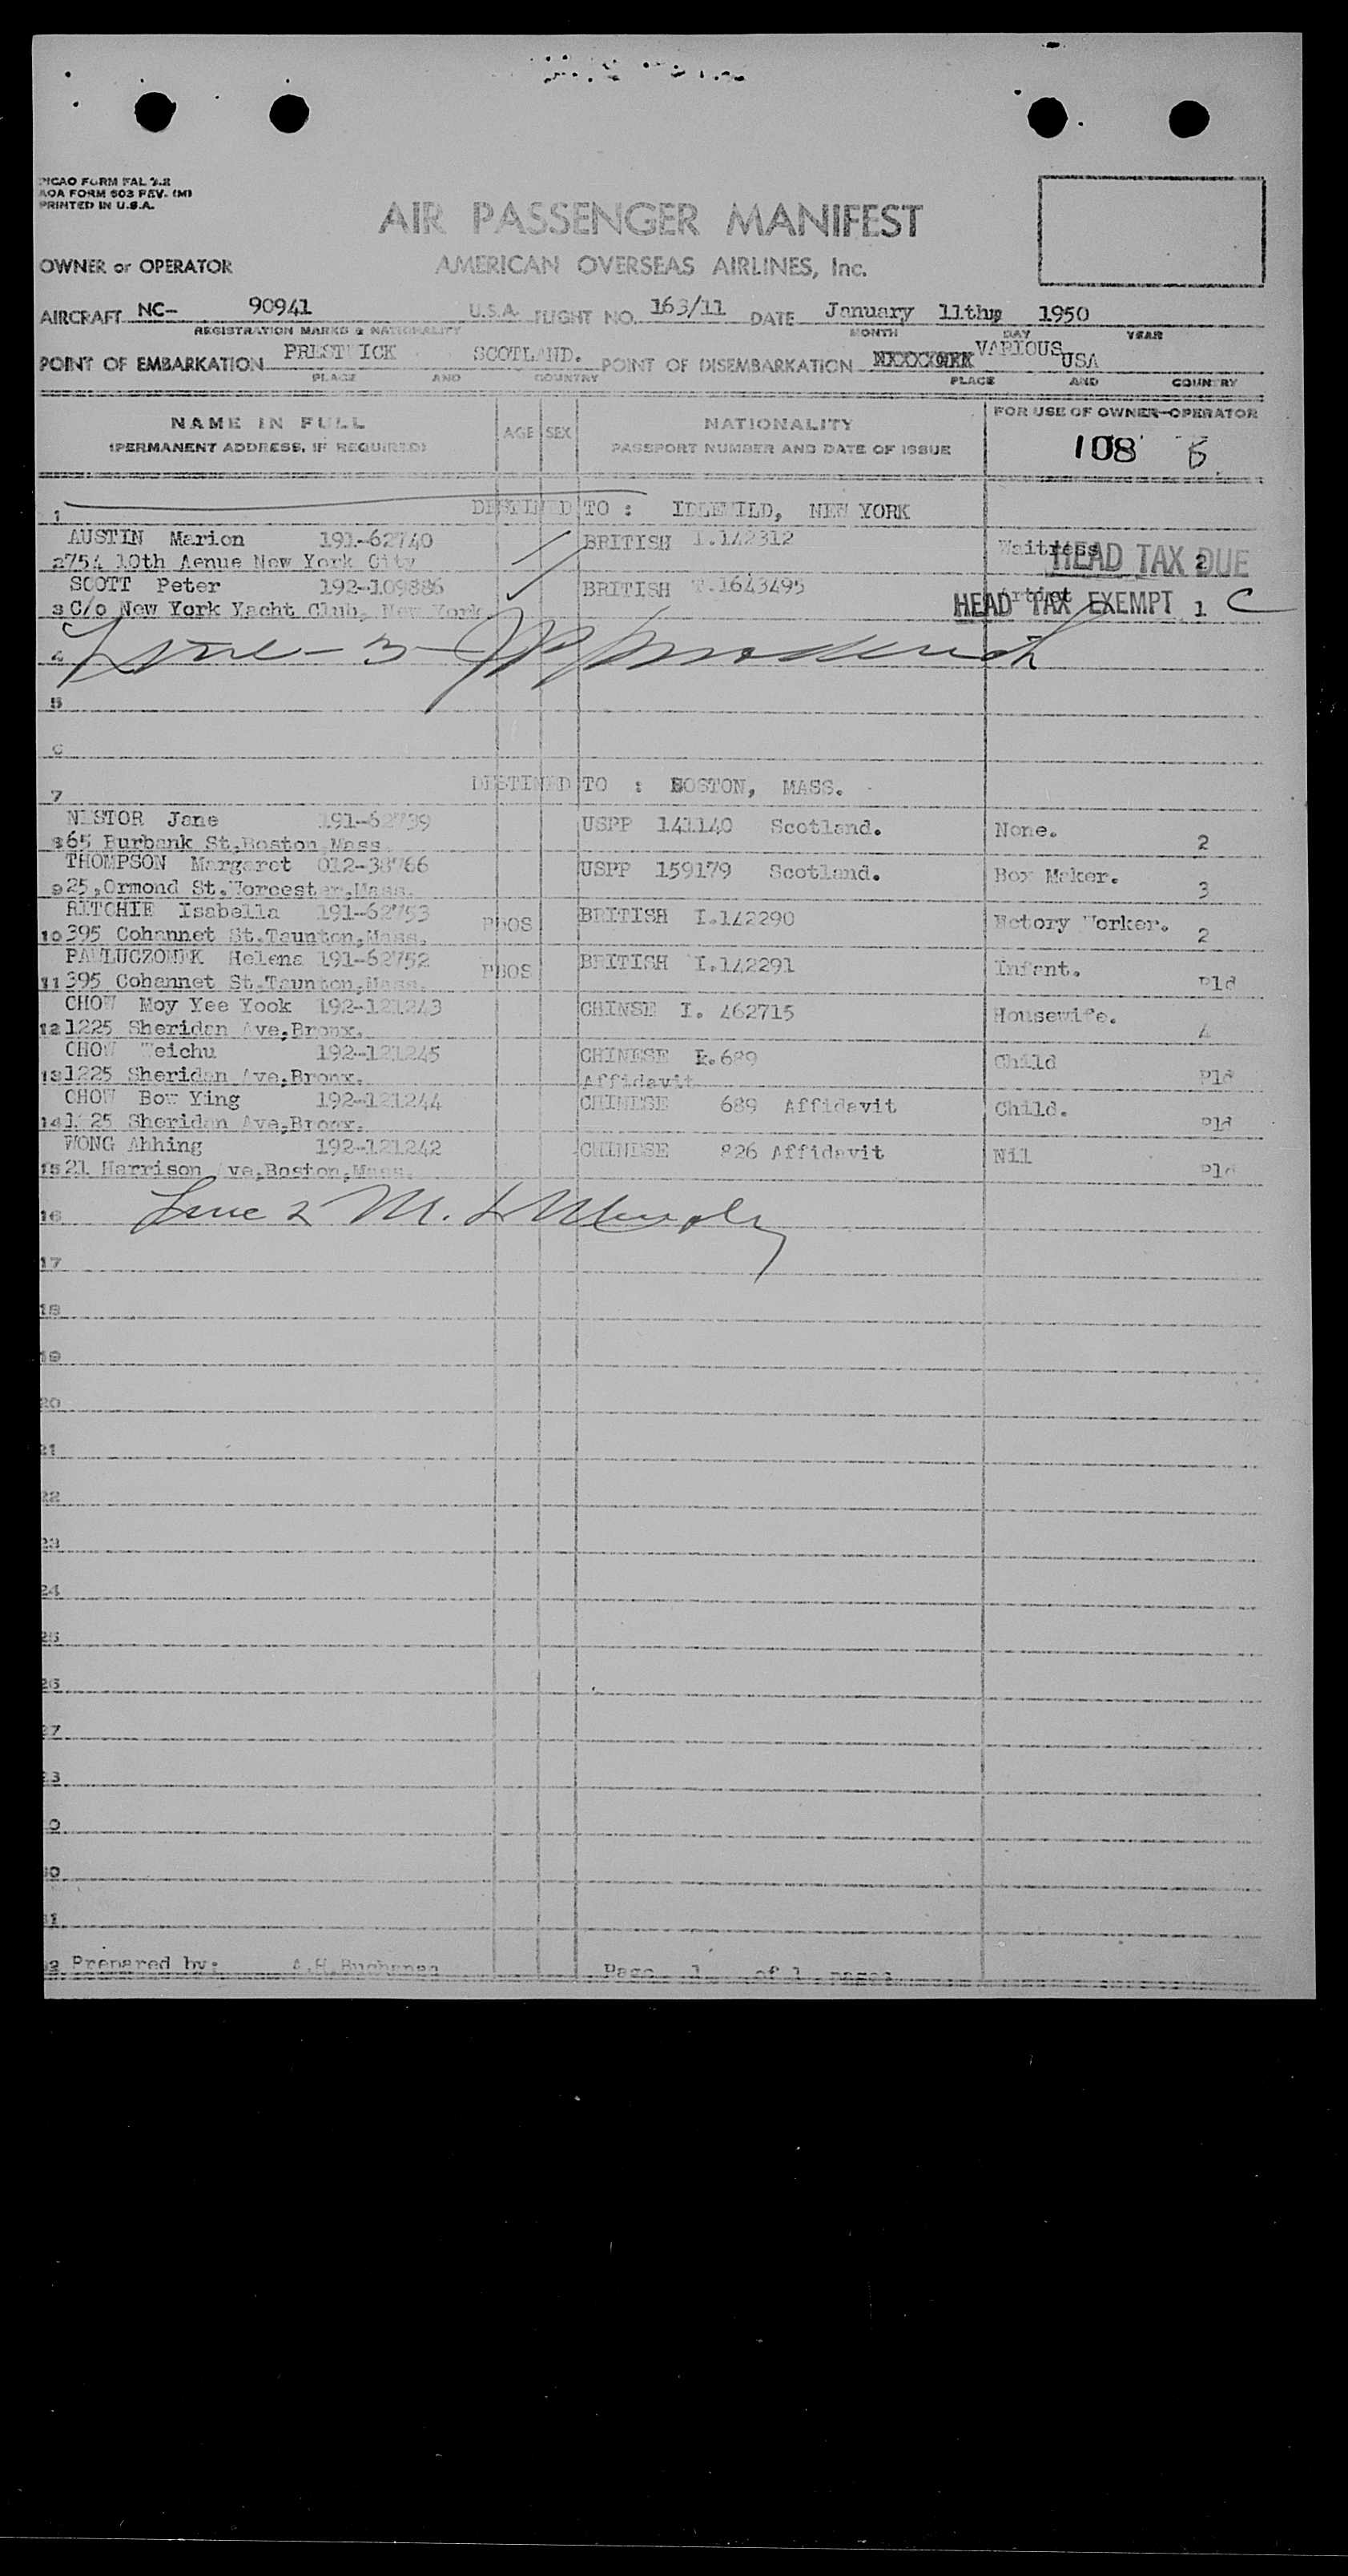 PICAO FORM FAL 2.2
AOA FORM 603 REV. (M)
PRINTED IN U.S.A.
AIR PASSENGER MANIFEST
OWNER or OPERATOR AMERICAN OVERSEAS AIRLINES, Inc.
AIRCRAFT NC- 90941 U.S.A. FLIGHT NO. 163/11 DATE January 11th 1950
REGISTRATION MARKS & NATIONALITY MONTH DAY YEAR
POINT OF EMBARKATION PRESTWICK SCOTLAND. POINT OF DISEMBARKATION VARIOUS USA
PLACE AND COUNTRY PLACE AND COUNTRY
NAME IN FULL AGE SEX NATIONALITY FOR USE OF OWNER-OPERATOR
(PERMANENT ADDRESS, IF REQUIRED) PASSPORT NUMBER AND DATE OF ISSUE 108
1 DESTINED TO : IDLEWILD, NEW YORK
AUSTIN Marion 191-62740 BRITISH I.142312 Waitress
2 754 10th Aenue New York City HEAD TAX DUE 2
SCOTT Peter 192-109886 BRITISH 1643495
3 C/o New York Yacht Club, New York HEAD TAX EXEMPT 1 C
4 Line - 3 -
5
6
7 DESTINED TO : BOSTON, MASS.
NESTOR Jane 191-62739 USPP 141140 Scotland. None.
8 65 Burbank St,Boston,Mass. 2
THOMPSON Margaret 012-38766 USPP 159179 Scotland. Box Maker.
9 25,Ormond St.Worcester,Mass. 3
RITCHIE Isabella 191-62753 PBOS BRITISH I.142290 Factory Worker.
10 395 Cohannet St.Taunton,Mass. 2
Helena 191-62752 PBOS BRITISH I.142291 Infant.
11 395 Cohannet St.Taunton,Mass. Pld
CHOW Moy Yee Yook 192-121243 CHINSE I. 462715 Housewife.
12 1225 Sheridan Ave,Bronx. 4
CHOW Weichu 192-121245 CHINESE 689 Child
13 1225 Sheridan Ave,Bronx. Affidavit Pld
CHOW Bow Ying 192-121244 CHINESE 689 Affidavit Child.
14 1225 Sheridan Ave,Bronx. Pld
WONG Ahhing 192-121242 CHINESE 826 Affidavit Nil
15 21 Harrison Ave,Boston,Mass. Pld
16 Line 2 M.
17
18
19
20
21
22
23
24
25
26
27
Prepared by: A.H.Buchanan Page 1 of 1 pages